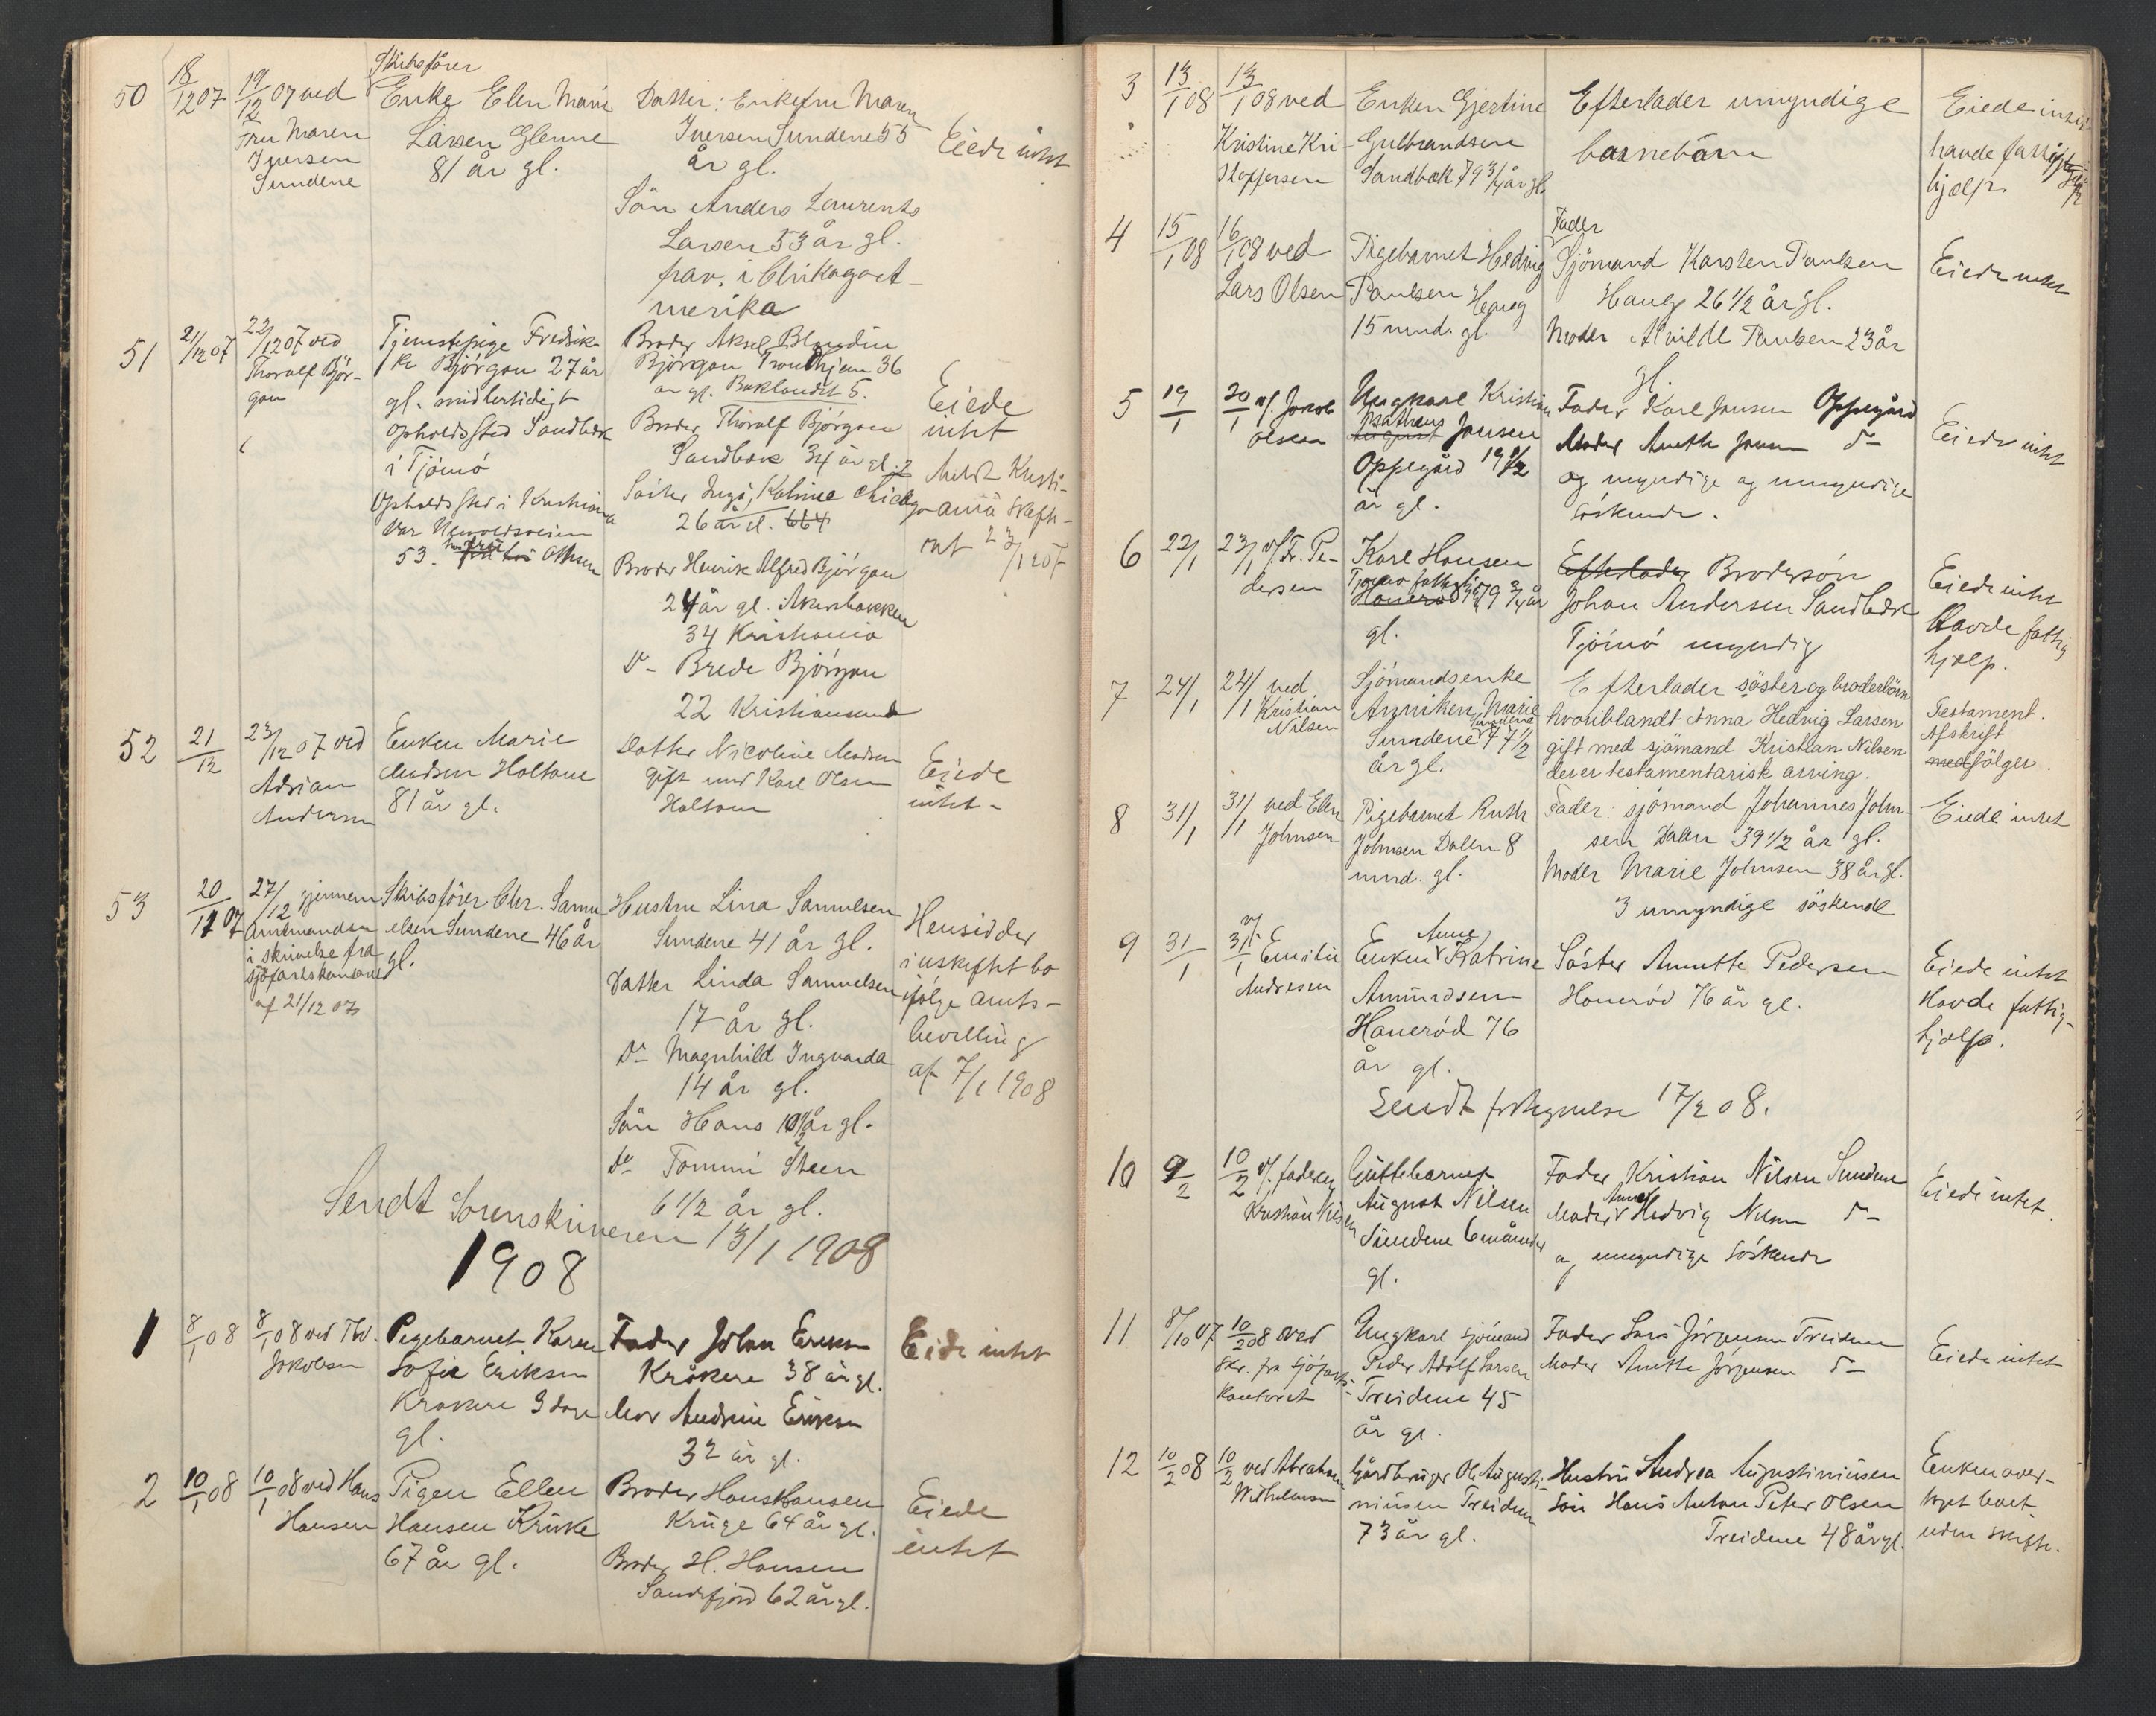 50
18/12 07
19/12 07 ved
Fru Maren
Iversen
Sundene
Skibsfører
Enke Elen Marie
Larsen Glenne
81 år gl.
Datter: Enkefru Maren
Iversen Sundene 55
år gl.
Sön Anders Laurents
Larsen 53 år gl.
frav. i Chikago A-
merika
Eiede intet
51
21/12 07
22/12 07 ved
Thoralf Bjør-
gan
Tjenestepige Fredrik-
ke Bjørgan 27 år
gl. midlertidigt
opholdssted Sandbæk
i Tjømø
Opholdssted i Kristiania
var
53. Othsen
Broder Aksel
Bjørgan Trondhjem 36
år gl. Baklandet 5.
Broder Thoralf Bjørgan
Sandbæk 34 år gl.
Søster Inga, Katrine Chicago
26 år gl. 664
Broder Henrik Alfred Bjørgan
24 år gl. Akersbakken
34 Kristiania
Do- Brede Bjørgan
22 Kristiansund
Eiede
intet
Meldt Kristi-
ania skifte-
ret 23/12 07
52
21/12
23/12 07 ved
Adrian
Andersen
Enken Marie
Madsen Holtane
81 år gl.
Datter Nicoline Madsen
gift med Karl Olsen
Holtane
Eiede
intet-
53
20/11 07
27/12 gjennem
Amtmanden
i skrivelse fra
sjøfartskontoret
af 21/12 07
Skibsfører Chr. Samu-
elsen Sundene 46 år
gl.
Hustru Lina Samuelsen
Sundene 41 år gl.
Datter Linda Samuelsen
17 år gl.
Do- Magnhild Ingvarda
14 år gl.
Sön Hans 10 1/2 år gl.
Do- Tommi Steen
6 1/2 år gl.
Hensidder
i uskiftet bo
ifølge amts-
bevilling
af 7/1 1908
Sendt Sorenskriveren 13/1 1908
1908
1
8/1 08
8/1 08 ved Th.
Jakobsen
Pigebarnet Karen
Sofie Eriksen
Kråkere 9 dage
gl.
Fader Johan Eriksen
Kråkere 38 år gl.
Mor Andrine Eriksen
32 år gl.
Eiede intet
2
10/1 08
10/1 08 ved Hans
Hansen
Pigen Ellen
Hansen Kruke
67 år gl.
Broder Hans Hansen
Kruge 64 år gl.
Broder H. Hansen
Sandefjord 62 år gl.
Eiede
intet
3
13/1 08
13/1 08 ved
Kristine Kri-
stoffersen
Enken Gjertine
Gulbrandsen
Sandbæk 79 3/4 år gl.
Efterlader umyndige
barnebärn
Eiede intet
havde fattig-
hjælp.
4
15/1 08
16/1 08 ved
Lars Olsen
Pigebarnet Hedvig
Paulsen Haug
15 mnd. gl.
Fader
Sjömand Karsten Paulsen
Haug 26 1/2 år gl.
Moder Alvilde Paulsen 23 år
gl.
Eiede intet
5
19/1
20/1 v/. Jakob
Olsen
Ungkarl Kristian
Matheus
August Jansen
Oppegård 19 1/2
år gl.
Fader Karl Jansen Oppegård
Moder Anette Jansen do-
og myndige og umyndige
søskende.
Eiede intet
6
22/1
23/1 v/. Fr. Pe-
dersen
Karl Hansen
Tjømø fattig
Honerød 79 3/4 år
gl.
Efterlader Brodersøn
Johan Andersen Sandbæk
Tjömö myndig
Eiede intet
Havde fattig
hjelp.
7
24/1
24/1 ved
Kristian
Nilsen
Sjömandsenke
Anniken Marie
Sundene
Sundene 77 1/2
år gl.
Efterlader söster og broderbörn
hvoriblandt Anna Hedvig Larsen
gift med sjömand Kristian Nilsen
der er testamentarisk arving.
Testament.
Afskrift
medfölger.
8
31/1
31/1 ved Elen
Johnsen
Pigebarnet Ruth
Johnsen Dalen 8
mnd. gl.
Fader: sjömand Johannes John-
sen Dalen 39 1/2 år gl.
Moder Marie Johnsen 38 år gl.
3 umyndige söskende
Eiede intet
9
31/1
31/1 v/. Emilie
Andresen
Enken Anne Katrine
Amundsen
Honerød 76
år gl.
Søster Annette Pedersen
Honerød 76 år gl.
Eiede intet
Havde fattig-
hjelp.
Sendt fortegnelse 17/2 08.
10
9/2
10/2 v/. faderen
Kristian Nilsen
Guttebarnet
August Nilsen
Sundene 6 måneder
gl.
Fader Kristian Nilsen Sundene
Moder Anna Hedvig Nilsen do-
og umyndige søskende
Eiede intet.
11
8/10 07
10/2 08 ved
skr. fra sjøfarts-
kontoret
Ungkarl sjömand
Peder Adolf Larsen
Treidene 45
år gl.
Fader Lars Jörgensen Treidene
Moder Anette Jörgensen do-
Eiede intet
12
10/2 08
10/2 ved Abraham
Wilhelmsen
Gårdbruger Ole Augusti-
niusen Treidene
73 år gl.
Hustru Andrea Augustiniusen
Sön Hans Anton Peter Olsen
Treidene 48 år gl.
Enken over-
taget boet
uden skifte.